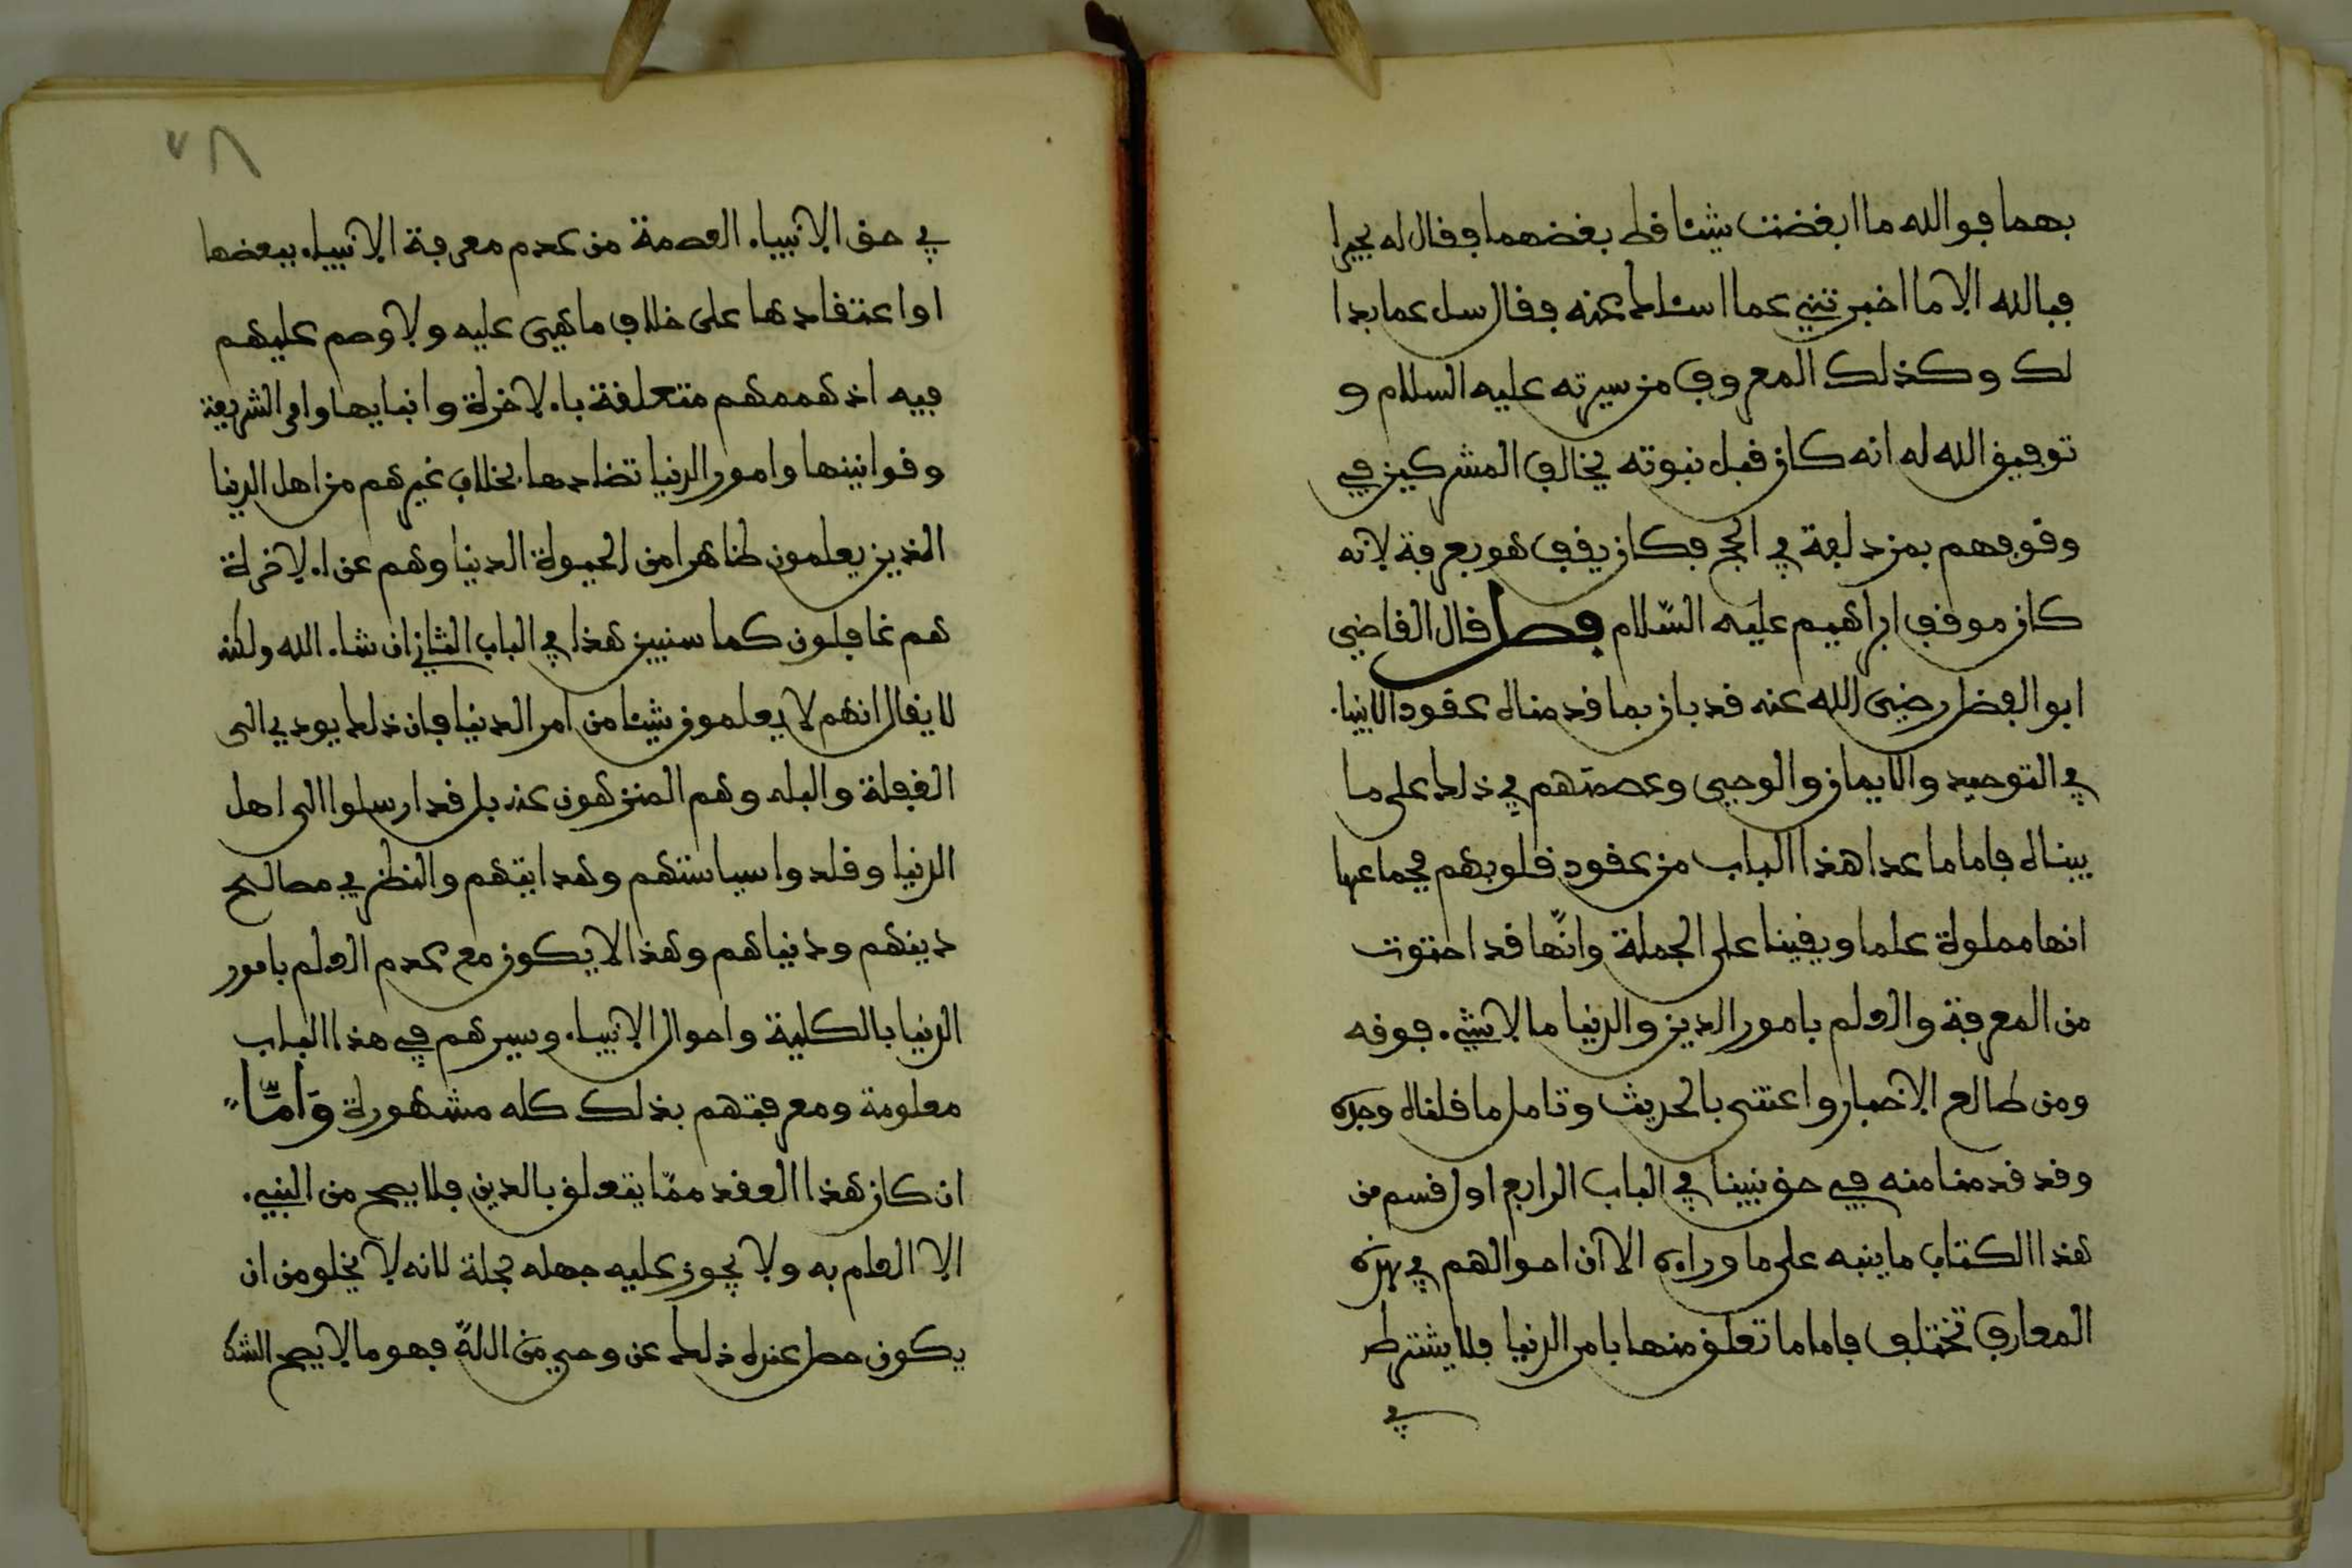 بهما فوالله ما ابغضت شيئا قط بغضهما فقال له بحيرا
فبالله الا ما اخبرتني عما اسئلك عنه فقال سل عما بدا
لك وكذلك المعروف من سيرته عليه السلام و
توفيق الله له انه كان قبل نبوته يخالف المشركين في
وقوفهم بمزدلفة في الحج فكان يقف هو بعرفة لانه
كان موقف ابراهيم عليه السّلام فصل قال القاضي
ابو الفضل رضي الله عنه قد بان بما قدمناه عقود الانبياء
في التوحيد والايمان والوحي وعصمتهم في ذلك على ما
بيناه فاما ما عدا هذا الباب من عقود قلوبهم فجماعها
انها مملوة علما ويقينا على الجملة وانّها قد احتوت
من المعرفة والعلم بامور الدين والدنيا ما لا شيء فوقه
ومن طالع الاخبار واعتنى بالحديث وتامل ما قلناه وجده
وقد قدمنا منه في حق نبينا في الباب الرابع اول قسم من
هذا الكتاب ما ينبه على ما وراءه الا ان احوالهم في هذه
المعارف تختلف فاما ما تعلق منها بامر الدنيا فلا يشترط
في
٧٨
في حق الانبياء العصمة من عدم معرفة الانبياء ببعضها
او اعتقادها على خلاف ما هي عليه ولا وصم عليهم
فيه اذ هممهم متعلقة بالاخرة وانبايها وامر الشريعة
وقوانينها وامور الدنيا تضادها بخلاف غيرهم من اهل الدنيا
الذين يعلمون ظاهرا من الحيوة الدنيا وهم عن الاخرة
هم غافلون كما سنبين هذا في الباب الثاني ان شاء الله ولكنه
لا يقال انهم لا يعلمون شيئا من امر الدنيا فان ذلك يودي الى
الغفلة والبله وهم المنزهون عنه بل قد ارسلوا الى اهل
الدنيا وقلدوا سياستهم وهدايتهم والنظر في مصالح
دينهم ودنياهم وهذا لا يكون مع عدم العلم بامور
الدنيا بالكلية واحوال الانبياء وسيرهم في هذا الباب
معلومة ومعرفتهم بذلك كله مشهورة وَامَّا
ان كان هذا العقد ممّا يتعلق بالدين فلا يصح من النبيء
الا العلم به ولا يجوز عليه جهله جملة لانه لا يخلو من ان
يكون حصل عنده ذلك عن وحي من الله فهو ما لا يصح الشك